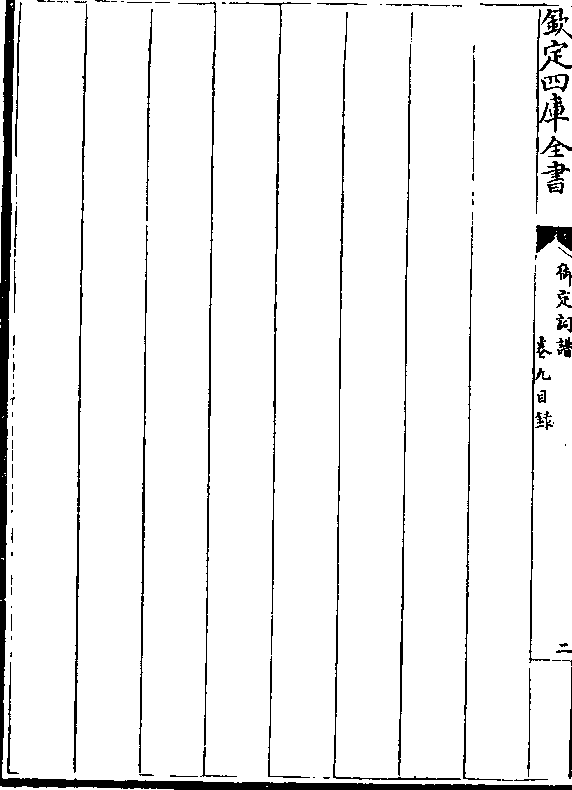 欽定四庫全書
御定詞譜
卷九目錄
二